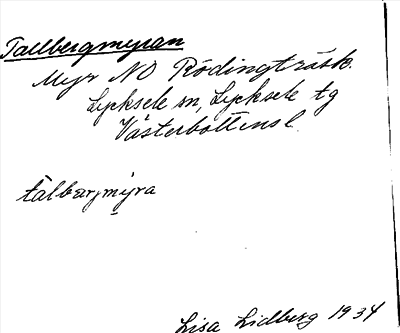 Tallbergmyran
Myr NO Rödingträsk.
Lycksele sn, Lycksele tg
Västerbottens l.
tålbærjmýra
Lisa Lidberg 1934